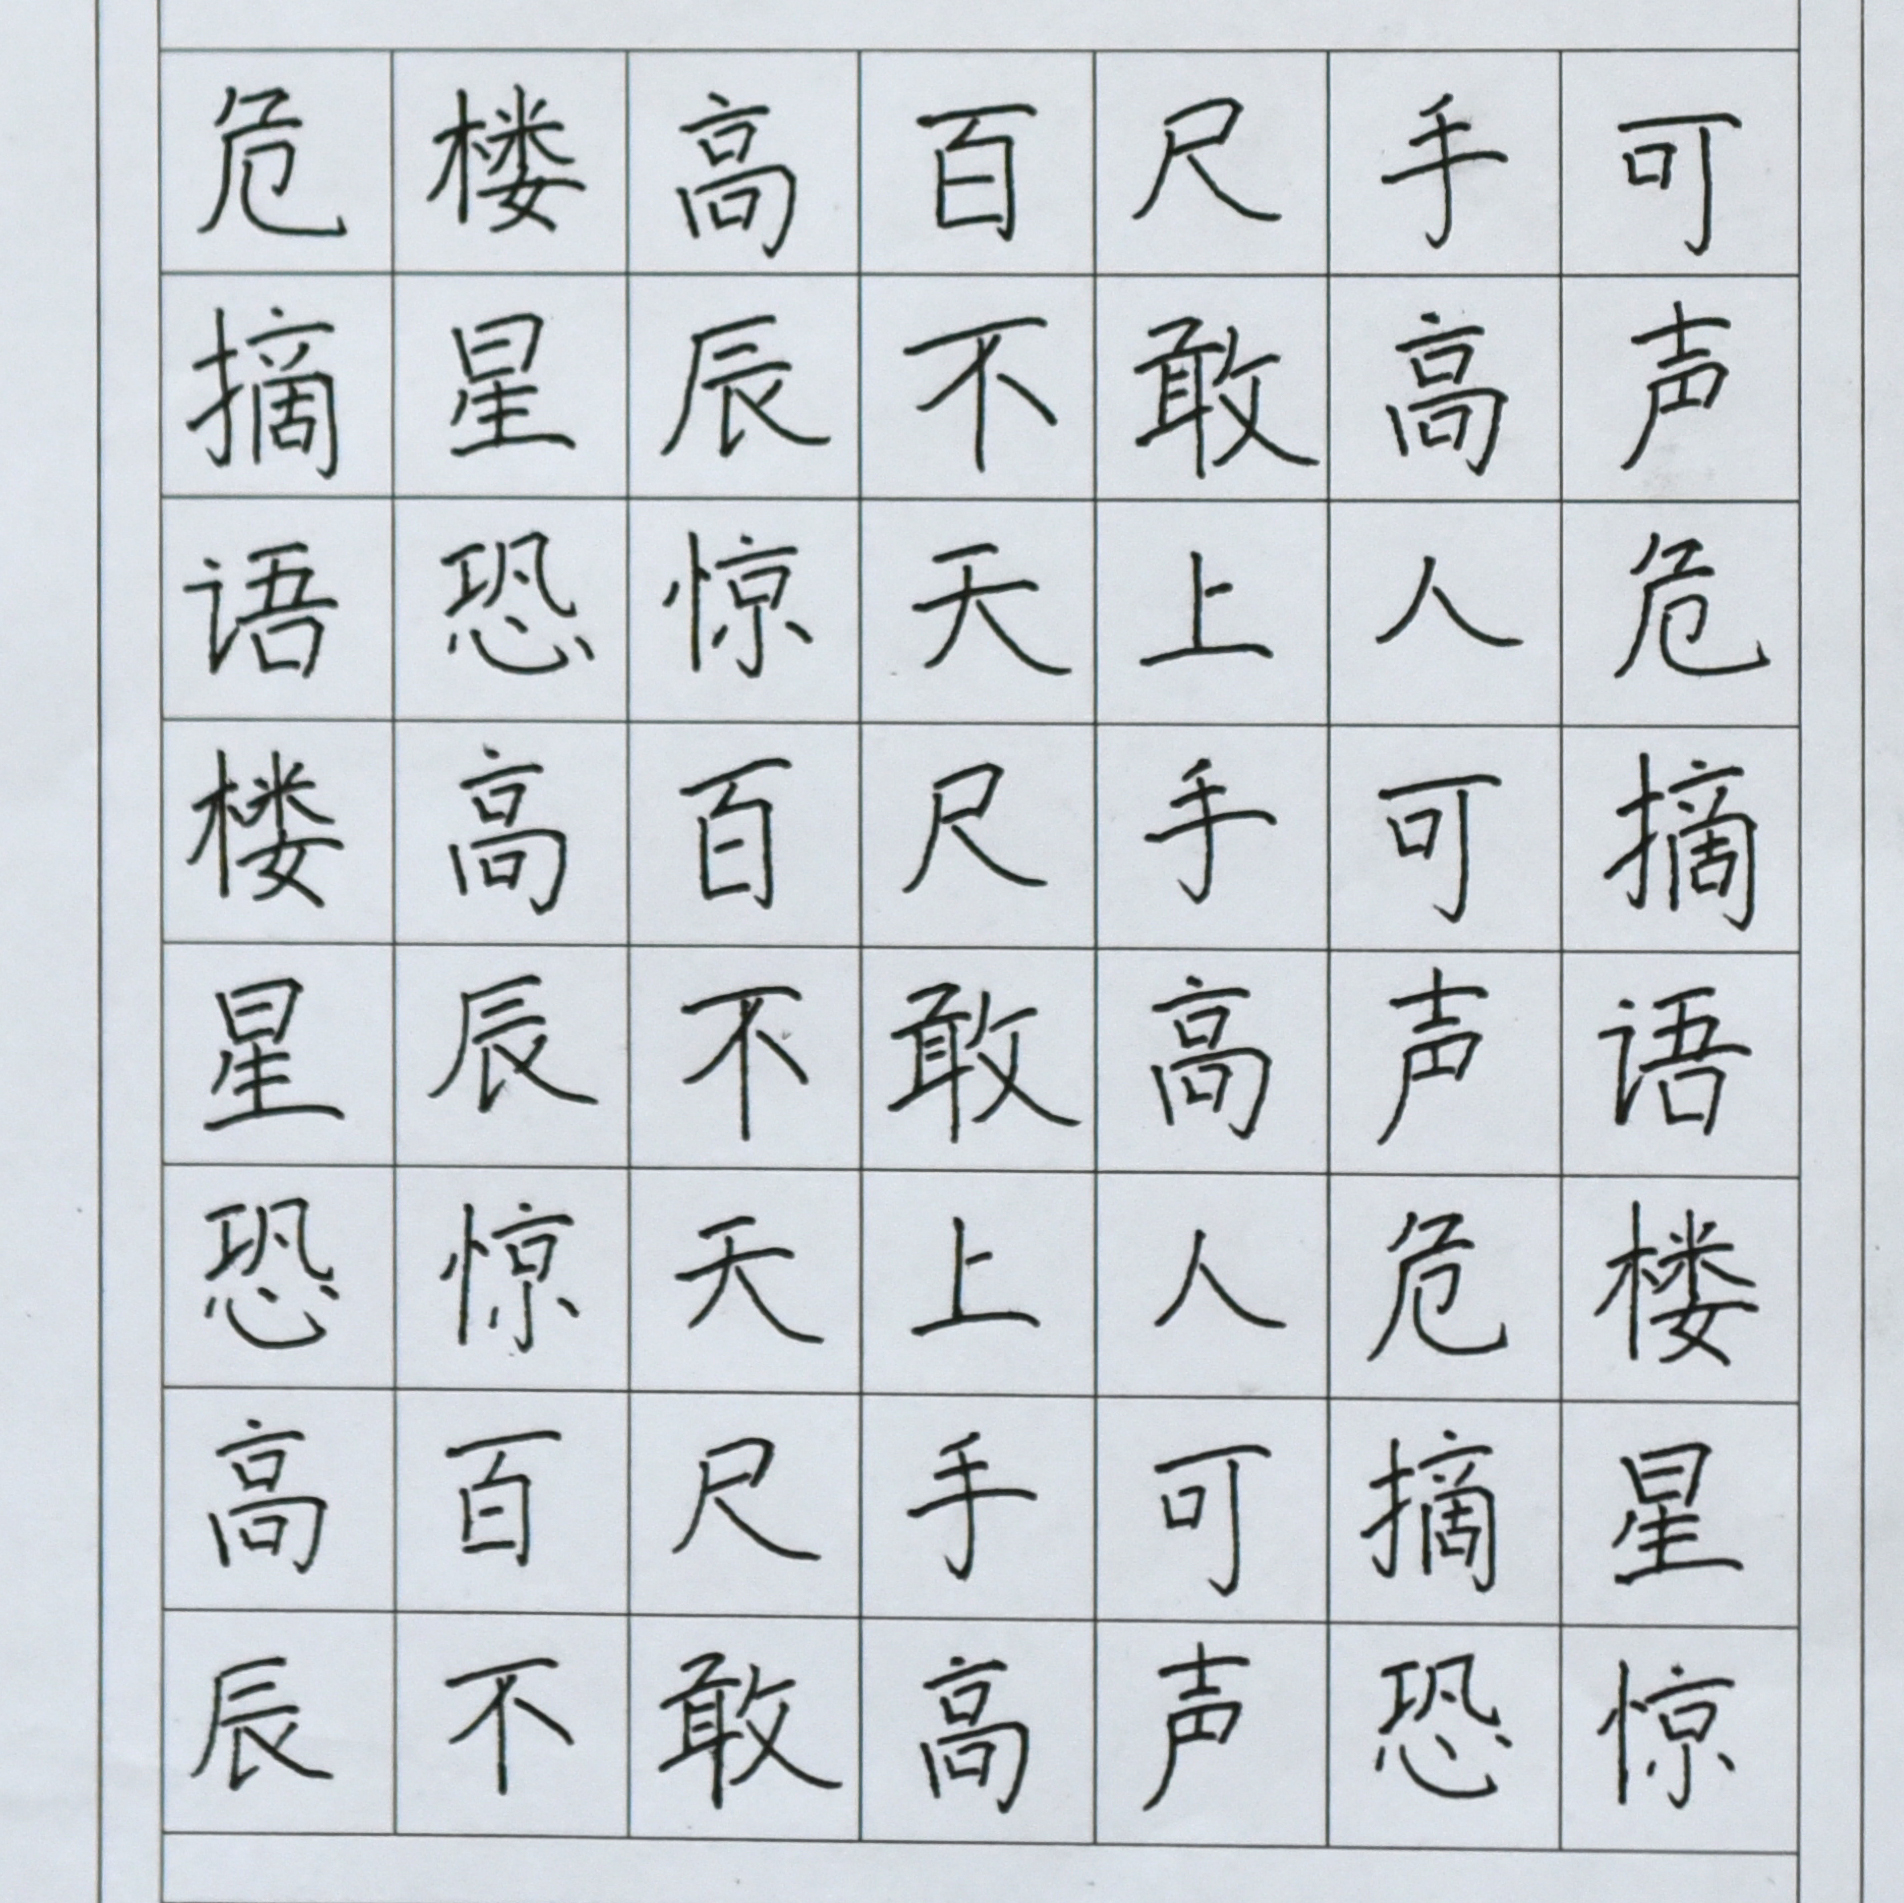 危楼高百尺手可
摘星辰不敢高声
语恐惊天上人危
楼高百尺手可摘
星辰不敢高声语
恐惊天上人危楼
高百尺手可摘星
辰不敢高声恐惊